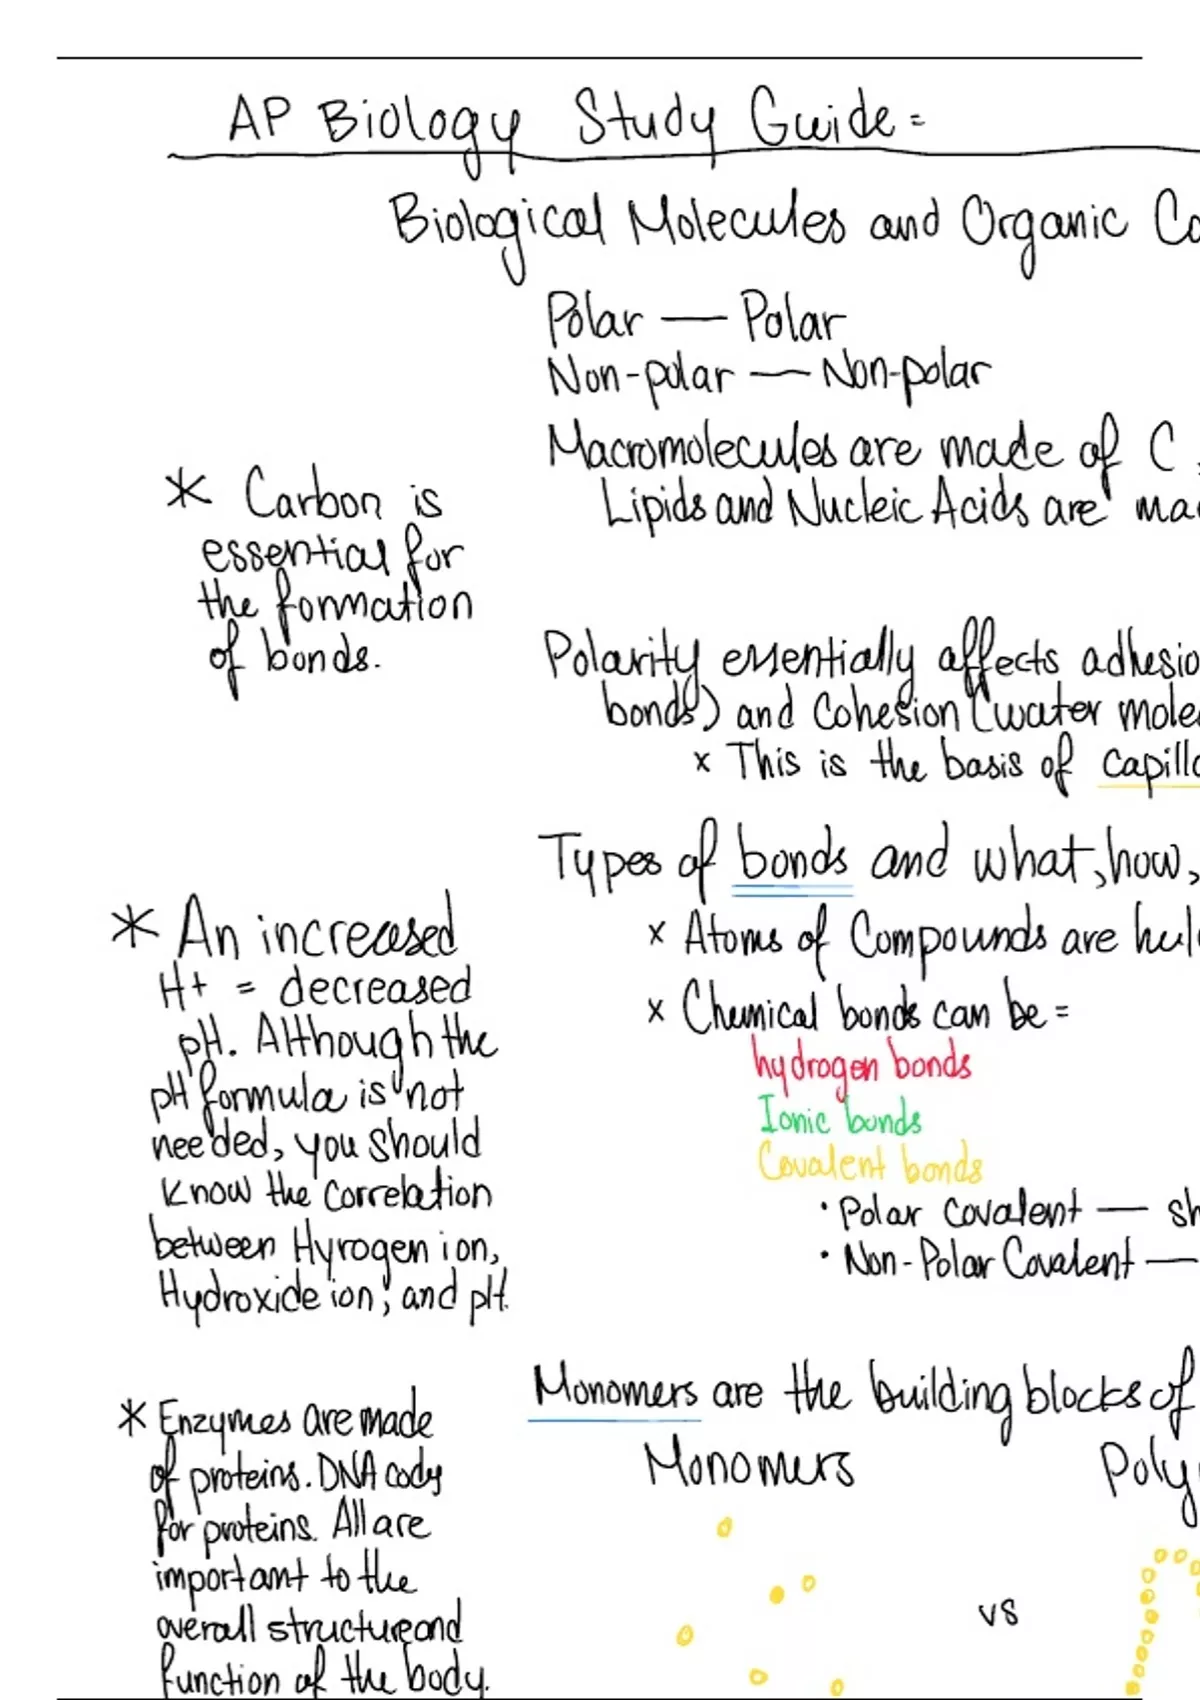 AP Biology Study Guide =
Biological Molecules and Organic Co
Polar — Polar
Non-polar — Non-polar
Macromolecules are made of C,
Lipids and Nucleic Acids are mad
* Carbon is
essential for
the formation
of bonds.
Polarity essentially affects adhesio
bonds) and Cohesion (water molec
x This is the basis of capilla
Types of bonds and what, how,
x Atoms of Compounds are held
x Chemical bonds can be =
hydrogen bonds
Ionic bonds
Covalent bonds
• Polar Covalent — sh
• Non-Polar Covalent —
* An increased
H+ = decreased
pH. Although the
pH formula is not
needed, you should
know the correlation
between Hyrogen ion,
Hydroxide ion, and pH.
Monomers are the building blocks of
Monomers
Poly
vs
* Enzymes are made
of proteins. DNA cody
for proteins. All are
important to the
overall structure and
function of the body.